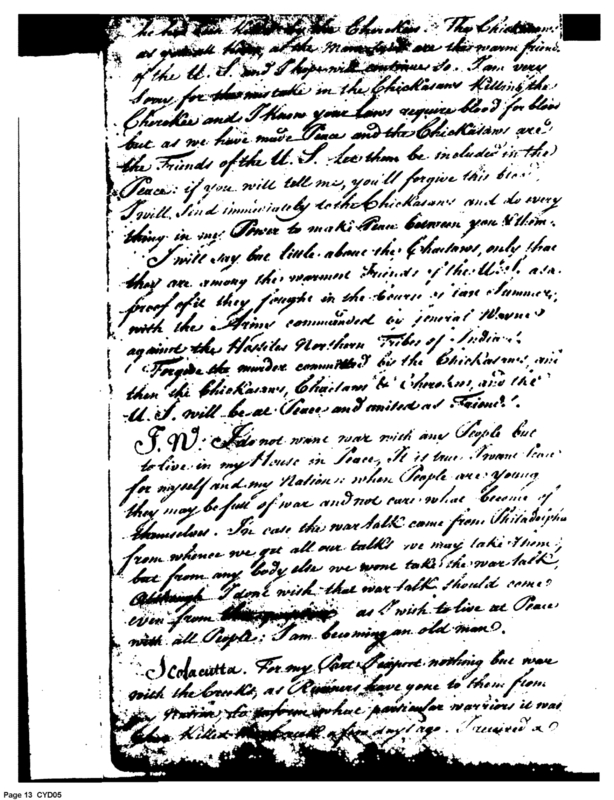 he had been killed by the Cherokees. The Chickasaws
as you all know, at the same are the warm friends
of the U. S. and I hope will continue so. I am very
sorry for the mistake in the Chickasaws killing the
Cherokee and I know your Laws require blood for blood
but as we have made Peace and the Chickasaws are
the Friends of the U. S. let them be included in the
Peace: if you will tell me, you'll forgive this blood
I will send immediately to the Chickasaws and do every
thing in my Power to make Peace between you & them.
I will say but little about the Choctaws, only that
they are among the warmest Friends of the U.S. as a
proof of it they fought in the Course of last Summer,
with the Army commanded by general Wayne
against the Hostile Northern Tribes of Indians.
Forgive the murder committed by the Chickasaws, and
then the Chickasaws, Choctaws & Cherokees, and the
U. S. will be at Peace and united as Friends.
J. W. I do not want war with any People but
to live in my House in Peace, It is true I want Peace
for myself and my Nation: when People are young
they may be full of war and not care what become of
themselves. In case the war talk come from Philadelphia
from whence we get all our talks we may take them,
but from any body else we wont take the war talk,
Although I dont wish that war talk should come
even from as I wish to live at Peace
with all People: I am becoming an old man.
Scolacutta. For my Part I expect nothing but war
with the Creeks, as Runners have gone to them from
my Nation, to inform what particular warriors it was
killed a few days ago. I received a
Page 13 CYD05